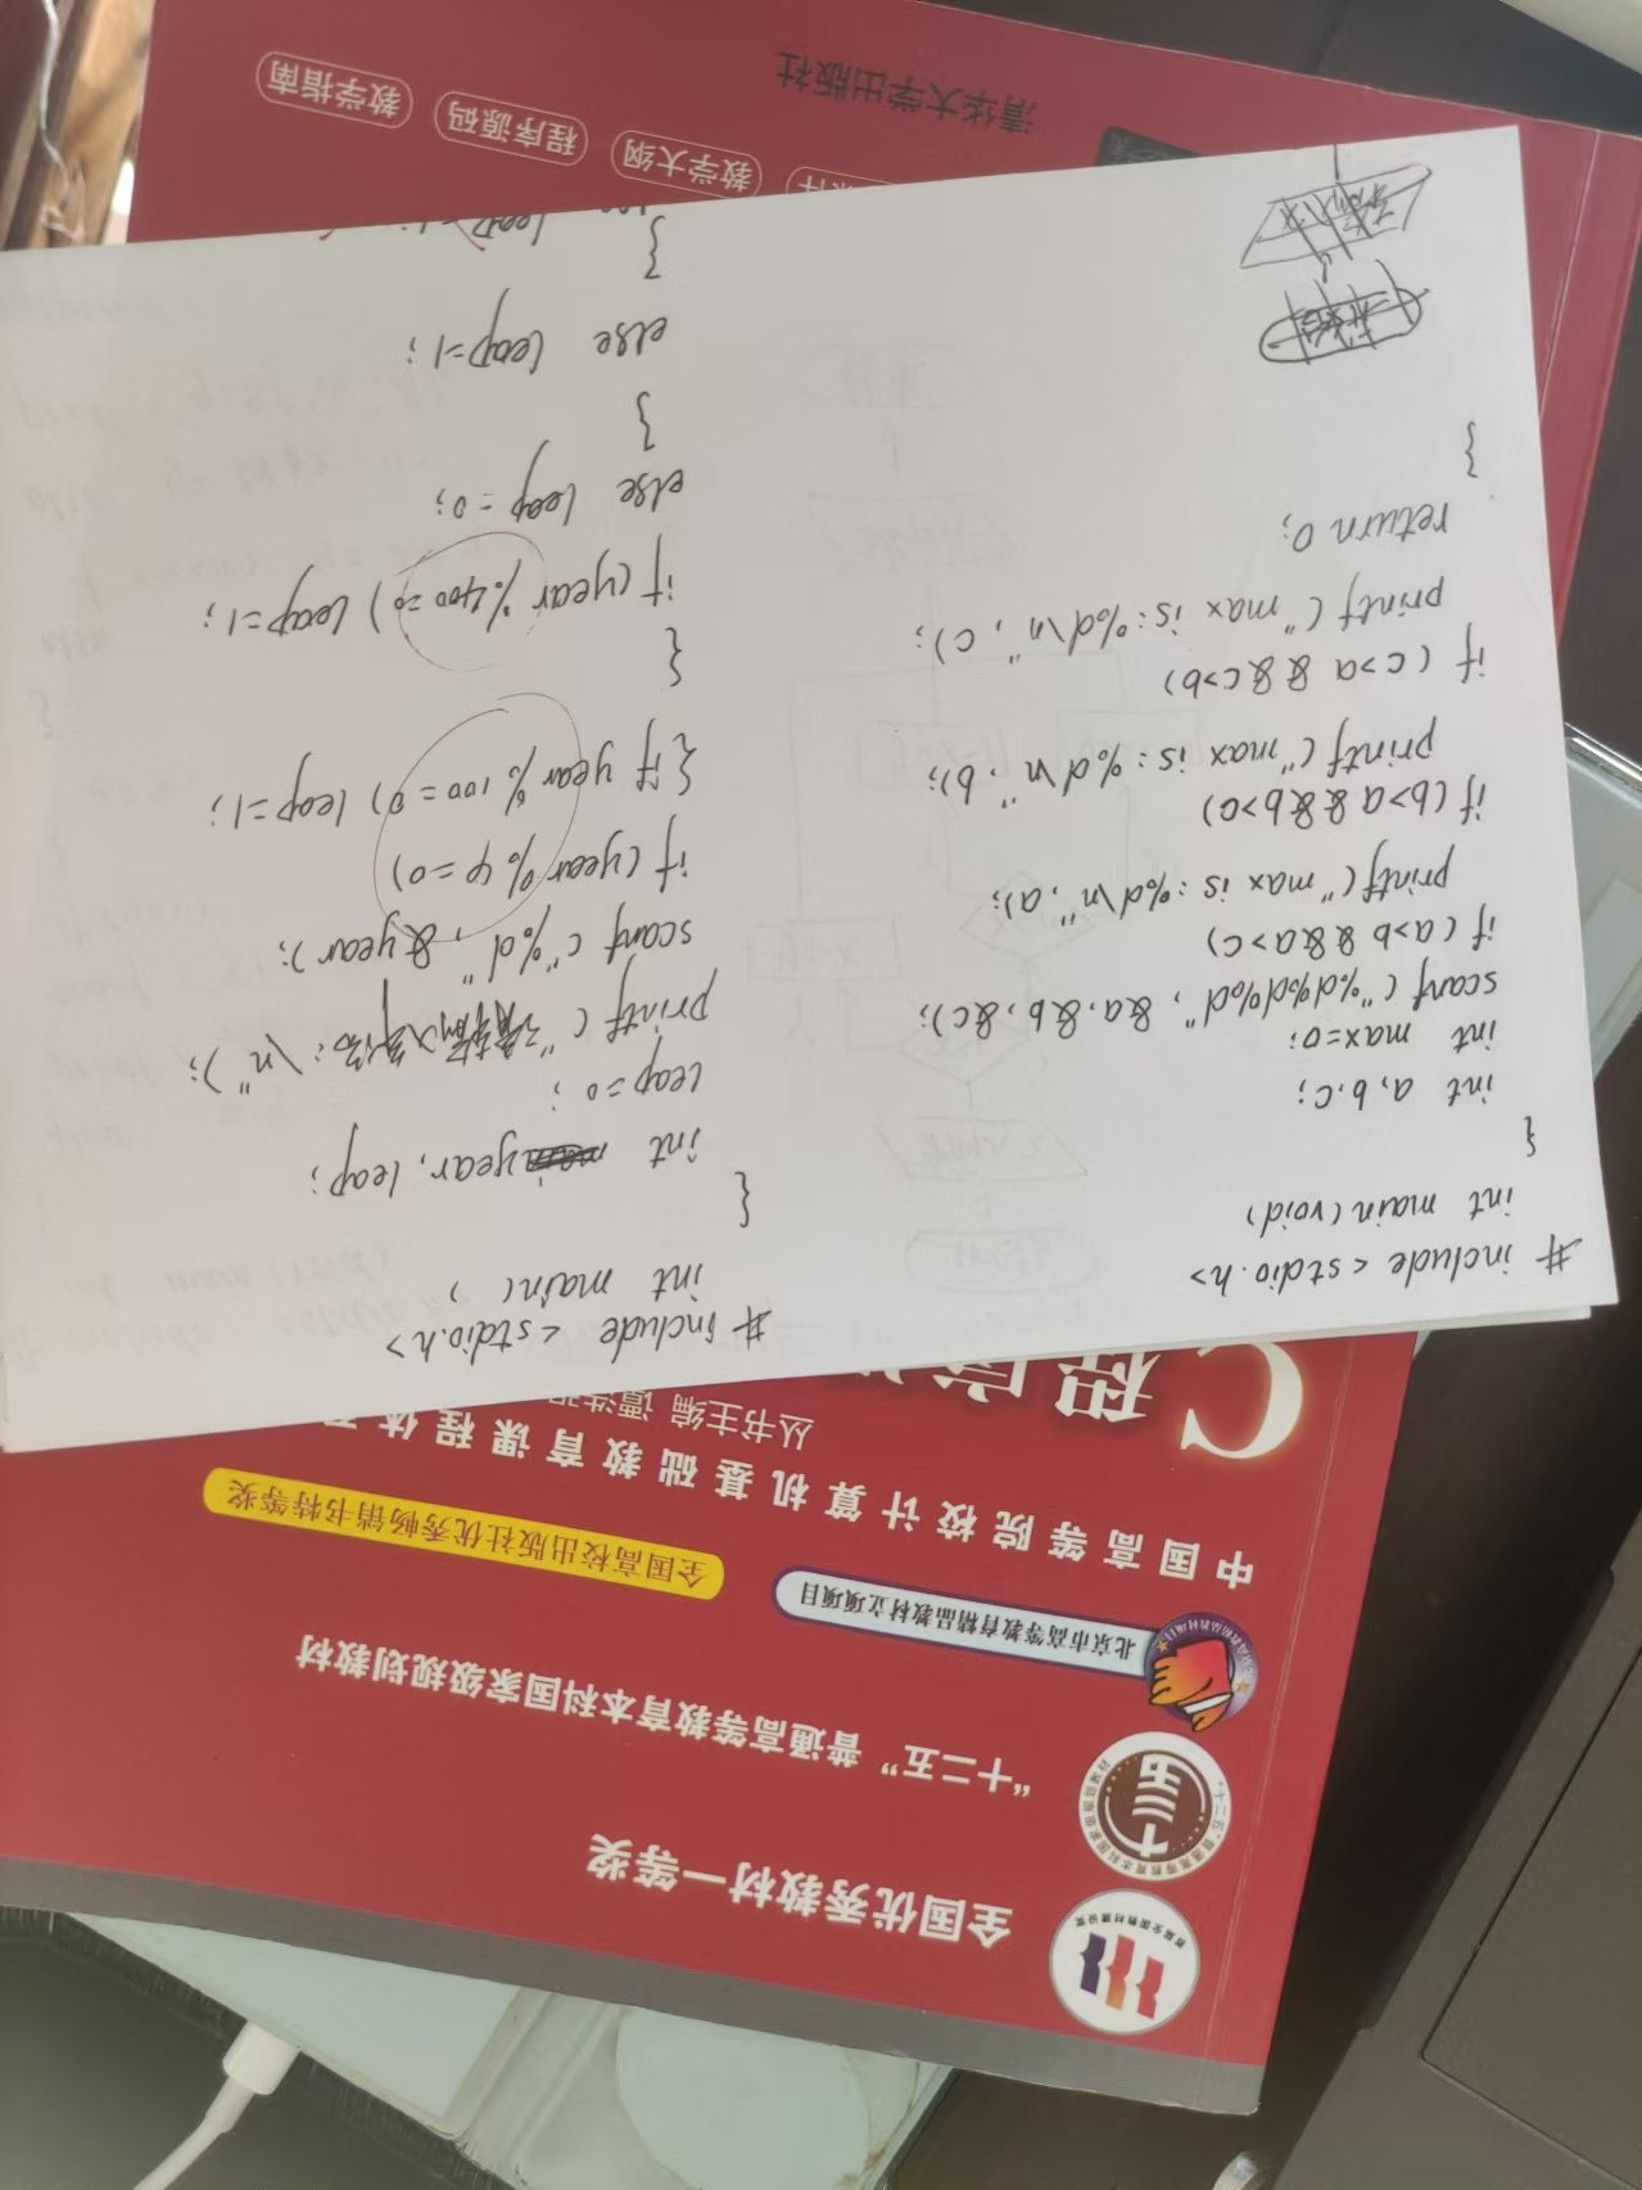 全国优秀教材一等奖
“十二五”普通高等教育本科国家级规划教材
北京市高等教育精品教材立项项目
全国高校出版社优秀畅销书特等奖
中国高等院校计算机基础教育课程体
丛书主编 谭浩
C程序
# include <stdio.h>
int main(void)
{
int a, b, c;
int max=0;
scanf ("%d%d%d", &a, &b, &c);
if (a>b && a>c)
printf ("max is:%d\n", a);
if (b>a && b>c)
printf ("max is:%d\n", b);
if (c>a && c>b)
printf ("max is:%d\n", c);
return 0;
}
开始
输入
# include <stdio.h>
int main( )
{
int year, leap;
leap=0;
printf ("请输入年份:\n");
scanf ("%d", &year);
if (year % 4 =0)
{if year % 100=0) leap=1;
{
if (year %400=0) leap=1;
else leap=0;
}
else leap=1;
}
教学大纲
程序源码
教学指南
清华大学出版社